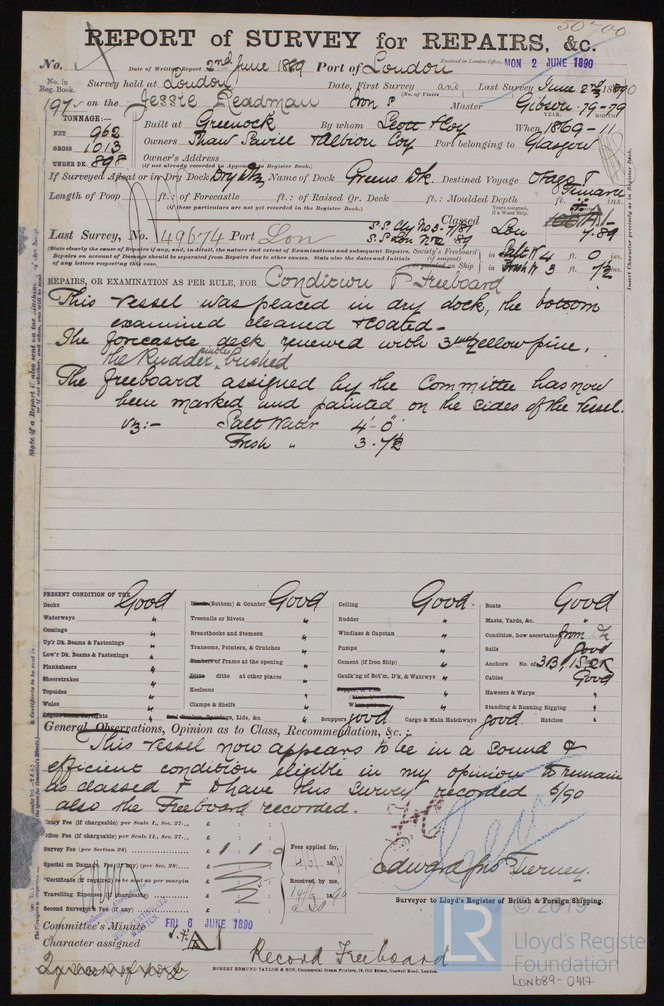 50400
REPORT of SURVEY for REPAIRS, &c.
No. Date of Writing Report 2nd June 1889 Port of London Received in London Office, MON 2 JUNE 1890
No. in Reg. Book. Survey held at London Date, First Survey and Last Survey June 2nd 1890
197 on the Jessie Readman Iron Master Gibson 79-79
TONNAGE:—
NET 962 Built at Greenock By whom Scott & Coy When 1869-11
GROSS 1013 Owners Shaw Savill & Albion Coy Port belonging to Glasgow
UNDER DK. 898 Owner's Address
(if not already recorded in Appendix to Register Book.)
If Surveyed Afloat or in Dry Dock Dry Dk Name of Dock Greens Dk. Destined Voyage Otago
Length of Poop ft.: of Forecastle ft.: of Raised Qr. Deck ft.: Moulded Depth ft. ins.
(if these particulars are not yet recorded in the Register Book.)
Classed
Last Survey, No. 49674 Port Lon
S.S. No 3-7/81
S.S. Lon No 2 89
Lon 7.89
Society's Freeboard
in Salt W 4 ft. 0 ins.
in Fresh W 3 ft. 7½
REPAIRS, OR EXAMINATION AS PER RULE, FOR Condition & Freeboard
This vessel was placed in dry dock, the bottom
examined cleaned & coated.
The forecastle deck renewed with 3 in yellow pine.
the Rudder pintles bushed
The freeboard assigned by the Committee has now
been marked and painted on the sides of the vessel.
viz:- Salt Water 4'-0"
Fresh " 3-7½
PRESENT CONDITION OF THE
Decks Good (Bottom) & Counter Good Ceiling Good. Boats Good
Waterways " Treenails or Rivets " Rudder " Masts, Yards, &c. "
Comings " Breasthooks and Stemson " Windlass & Capstan " Condition, how ascertained from Dk
Up'r Dk. Beams & Fastenings " Transoms, Pointers, & Crutches " Pumps " Sails good
Low'r Dk. Beams & Fastenings " Timbers of Frame at the opening " Cement (if Iron Ship) " Anchors No. of 3B, 1S, 2K
Planksheers " Ditto ditto at other places " Caulk'ng of Bot'm, D'k, & Waterw'ys " Cables Good
Sheerstrakes " Keelsons " Hawsers & Warps "
Topsides " Clamps & Shelfs " Standing & Running Rigging "
Wales "
Scuppers good Cargo & Main Hatchways good. Hatches "
General Observations, Opinion as to Class, Recommendation, &c.:—
This vessel now appears to be in a sound &
efficient condition eligible in my opinion to remain
as classed & to have this survey recorded 6/90
also the Freeboard recorded.
Entry Fee (if chargeable) per Scale I., Sec. 27... £
Office Fee (if chargeable) per Scale II., Sec. 27... £
Survey Fee (per Section 28) £ 1 : 1 : 0
Special or Damage Fee (if any) (per Sec. 28) £
*Certificate (if required) to be sent as per margin £
Travelling Expenses (if chargeable) £
Second Surveyor's Fee (if any) £
Fees applied for,
Received by me,
Edward Jno Tierney.
Surveyor to Lloyd's Register of British & Foreign Shipping.
Committee's Minute FRI 6 JUNE 1890
Character assigned
Record Freeboard
ROBERT EDMUND TAYLOR & SON, Commercial Steam Printers, 19, Old Street, Goswell Road, London.
LR
© 2019
Lloyd's Register
Foundation
LON689-0417